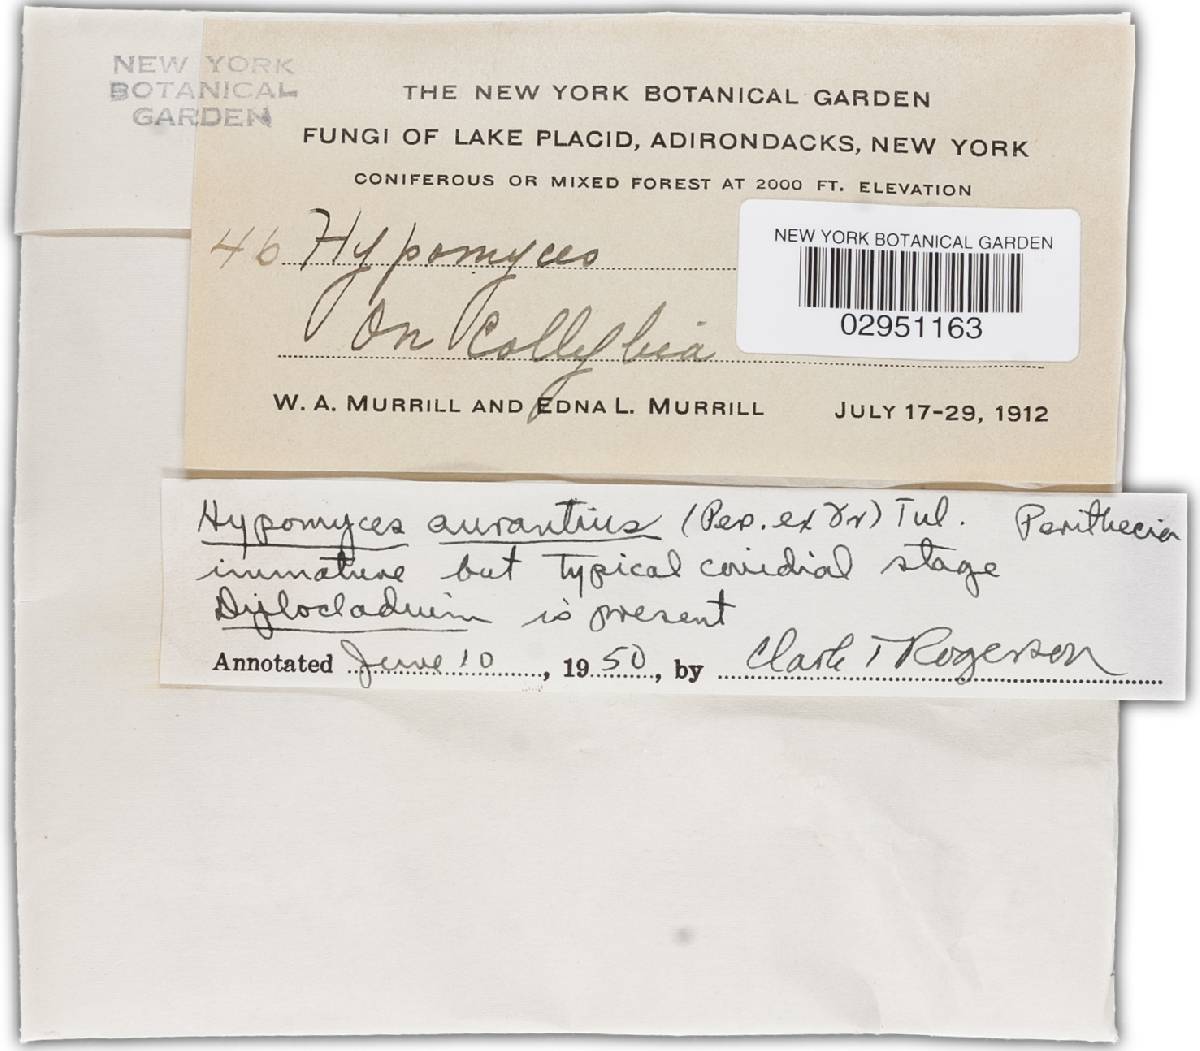 NEW YORK
BOTANICAL
GARDEN
THE NEW YORK BOTANICAL GARDEN
FUNGI OF LAKE PLACID, ADIRONDACKS, NEW YORK
CONIFEROUS OR MIXED FOREST AT 2000 FT. ELEVATION
46 Hypomyces
On Collybia
NEW YORK BOTANICAL GARDEN
02951163
W. A. MURRILL AND EDNA L. MURRILL JULY 17-29, 1912
Hypomyces aurantius (Pers. ex Fr) Tul. Perithecia
immature but typical conidial stage
Diplocladium is present
Annotated June 10, 1950, by Clark T Rogerson